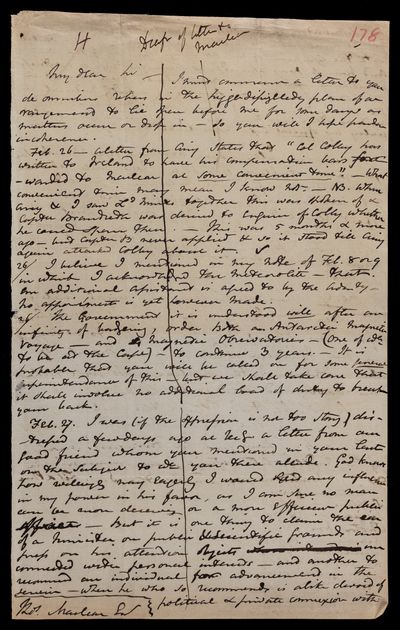 H Draft of letter to Maclear
178
My dear Sir — I must commence a letter to you
de omnibus rebus in the higgledipiggledy plan of ar
rangement to lie open before me for some days as
matters occur or drop in — so you will I hope pardon
incoherence.
Feb. 26 — a letter from Airy states that "Col Colby has
written to Ireland to have his compensation bars for
warded to Maclear at some convenient time" — What
convenient time may mean I know not. — NB. When
Airy & I saw Ld Minto together this was spoken of &
Captn Brandreth was desired to enquire of Colby whether
he could spare them. — This was 5 months & more
ago — but Captn B never applied & so it stood till Airy
again attacked Colby about it.
26. I believe I mentioned in my note of Feb. 8 or 9
in which I acknowledged the Meteorolite — that
an additional assistant is agreed to by the Admty —
no appointment is yet however made.
26. The Government it is understood will after an
infinity of bothering, order both an Antarctic Magnetic
Voyage — and Magnetic Observatories — (One of wch
to be at the Cape) — to continue 3 years. — It is
probable that you will be called on for some general
superintendence of this — but we shall take care that
it shall involve no additional load of duty to break
your back.
Feb. 27. I was (if the expression is not too strong) dis-
tressed a few days ago at getting a letter from our
good friend whom you mentioned in your last
on the subject to wch you there allude. God knows
how willingly nay eagerly I would use any influence
in my power in his favor, as I am sure no man
can be more deserving or a more efficient public
officer — But it is one thing to claim the ear
of a Minister on public & scientific grounds and
press on his attention objects
connected with personal interests — and another to
recommend an individual for advancement in the
service — when he who so recommends is alike devoid of
political & private connexion with
Thos. Maclear Esq